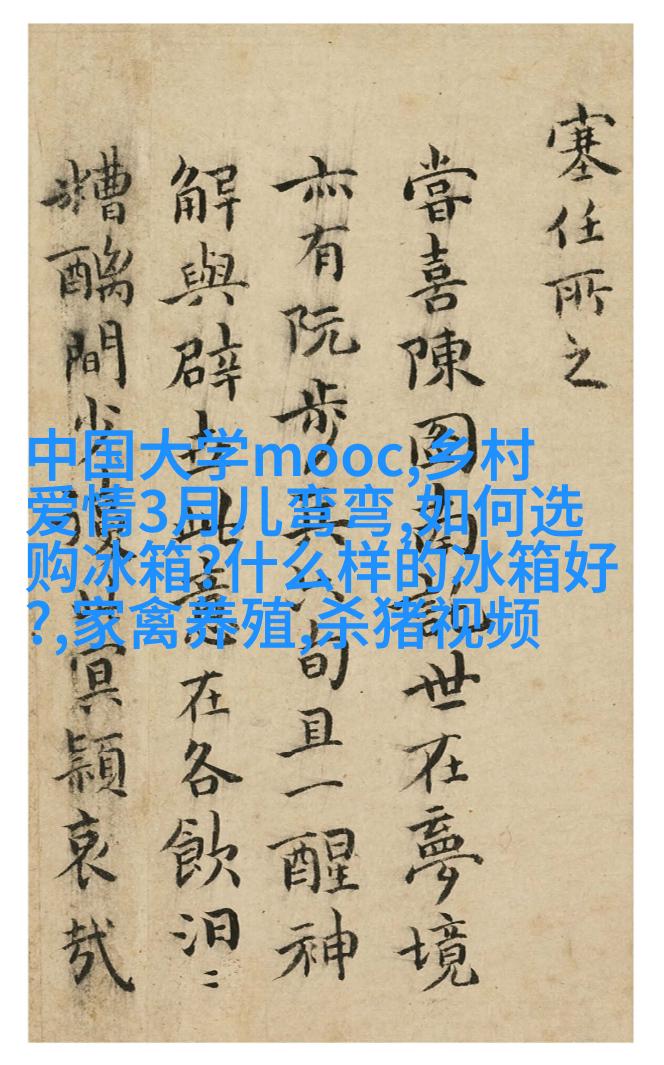 塞任所之
嘗喜陳圖南說世在夢境
亦有阮步兵六旬且一醒神
解與辟此意在各飲汩〻
糟醨間冥穎哀哉
中国大学mooc,乡村
爱情3月儿弯弯,如何选
购冰箱?什么样的冰箱好
?,家禽养殖,杀猪视频